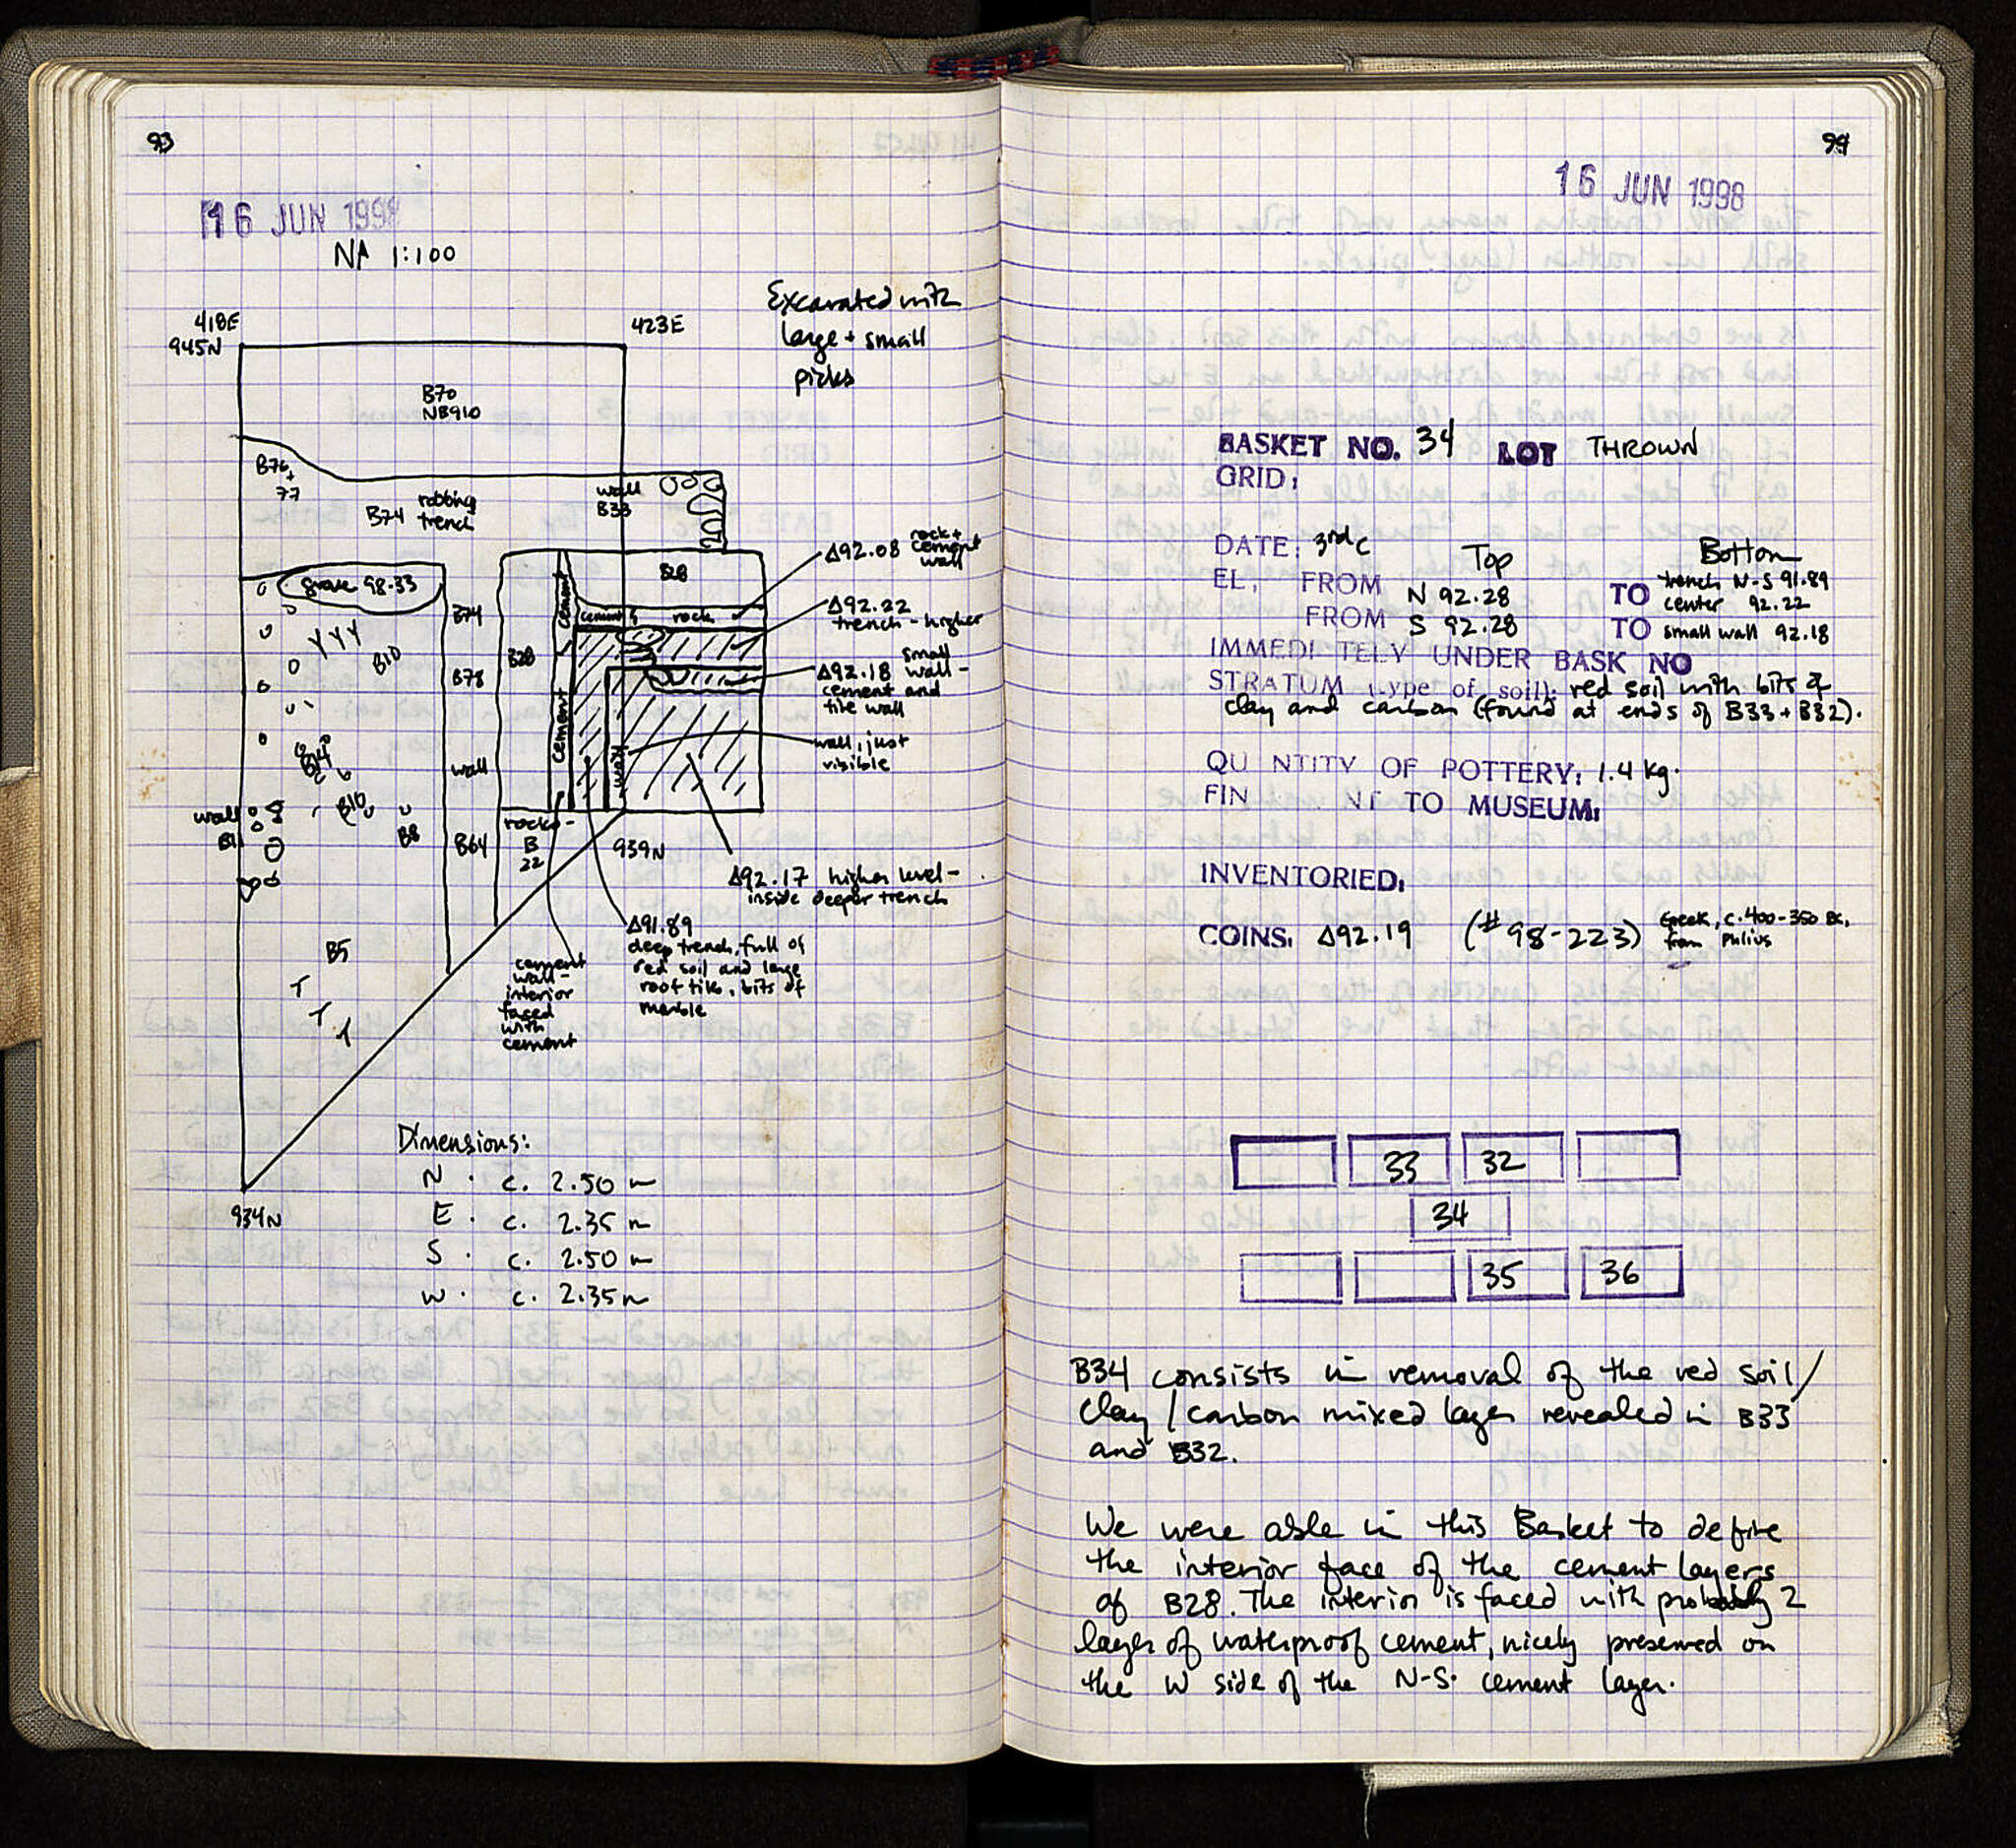 93
16 JUN 1998
NA 1:100
418E
945N
423E
Excavated with
large + small
picks
B70
NB910
B76
+
77
B74
robbing
trench
wall
B33
grave 98-33
B74
B28
cement
cement
rock
Δ92.08 rock +
cement
wall
Δ92.22
trench - higher
Δ92.18 small
wall -
cement and
tile wall
wall, just
visible
B10
B78
B28
cement
wall
B14
B10
B8
wall
B1
wall
B64
rocks -
B
22
939N
Δ92.17 higher level -
inside deeper trench
Δ91.89
deep trench, full of
red soil and large
roof tile, bits of
marble
cement
wall -
interior
faced
with
cement
B5
934N
Dimensions:
N . c. 2.50 m
E . c. 2.35 m
S . c. 2.50 m
W . c. 2.35 m
94
16 JUN 1998
BASKET NO. 34 LOT THROWN
GRID:
DATE: 3rd c Top Bottom
EL, FROM N 92.28 TO trench N-S 91.89
center 92.22
FROM S 92.28 TO small wall 92.18
IMMEDI TELY UNDER BASK NO
STRATUM (type of soil): red soil with bits of
clay and carbon (found at ends of B33 + B32).
QU NTITY OF POTTERY: 1.4 kg.
FIN NT TO MUSEUM:
INVENTORIED:
COINS: Δ92.19 (#98-223) Greek, c. 400-350 BC,
from Phlius
33 32
34
35 36
B34 consists in removal of the red soil/
clay/carbon mixed layer revealed in B33
and B32.
We were able in this Basket to define
the interior face of the cement layers
of B28. The interior is faced with probably 2
layers of waterproof cement, nicely preserved on
the W side of the N-S. cement layer.